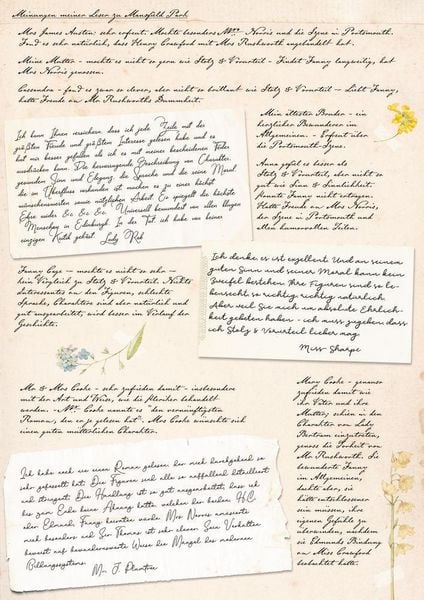 Meinungen meiner Leser zu Mansfield Park
Mrs James Austen: sehr erfreut. Mochte besonders Mrs Norris und die Szene in Portsmouth.
Fand es sehr natürlich, dass Henry Crawford mit Mrs Rushworth angebandelt hat.
Meine Mutter - mochte es nicht so gern wie Stolz & Vorurteil - Findet Fanny langweilig, hat
Mrs Norris genossen.
Cassandra - fand es zwar so clever, aber nicht so brillant wie Stolz & Vorurteil - Liebt Fanny,
hatte Freude an Mr Rushworths Dummheit.
Ich kann Ihnen versichern, dass ich jede Zeile mit der
größten Freude und größtem Interesse gelesen habe und es
hat mir besser gefallen als ich es mit meiner bescheidenen Feder
ausdrücken kann. Die hervorragende Beschreibung von Charakter,
gesundem Sinn und Eleganz, die Sprache und die reine Moral
die im Überfluss vorhanden ist machen es zu einer höchst
wünschenswerten sowie nützlichen Arbeit. Es spiegelt die höchste
Ehre wider &c &c &c. Universell bewundert von allen klugen
Menschen in Edinburgh. In der Tat, ich habe von keiner
einzigen Kritik gehört. Lady Rob
Mein ältester Bruder - ein
herzlicher Bewunderer im
Allgemeinen. - Erfreut über
die Portsmouth-Szene.
Anna gefiel es besser als
Stolz & Vorurteil, aber nicht so
gut wie Sinn & Sinnlichkeit.
Konnte Fanny nicht ertragen.
Hatte Freude an Mrs Norris,
der Szene in Portsmouth und
allen humorvollen Teilen.
Fanny Cage - mochte es nicht so sehr -
kein Vergleich zu Stolz & Vorurteil. Nichts
Interessantes an den Figuren, schlechte
Sprache, Charaktere sind aber natürlich und
gut ausgearbeitet, wird besser im Verlauf der
Geschichte.
Ich denke es ist exzellent. Und an seinem
guten Sinn und seiner Moral kann kein
Zweifel bestehen. Ihre Figuren sind so le-
bensecht so richtig richtig natürlich.
Aber weil Sie mich um absolute Ehrlich-
keit gebeten haben - ich muss zugeben, dass
ich Stolz & Vorurteil lieber mag.
Miss Sharpe
Mr & Mrs Cooke - sehr zufrieden damit - insbesondere
mit der Art und Weise, wie die Pfarrer behandelt
werden. - Mr Cooke nannte es "den vernünftigsten
Roman, den er je gelesen hat". Mrs Cooke wünschte sich
einen guten mütterlichen Charakter.
Mary Cooke - genauso
zufrieden damit wie
ihr Vater und ihre
Mutter; schien in den
Charakter von Lady
Bertram einzutreten,
genoss die Torheit von
Mr Rushworth. Sie
bewunderte Fanny
im Allgemeinen,
dachte aber, sie
hätte entschlossener
sein müssen, ihre
eigenen Gefühle zu
überwinden, nachdem
sie Edmunds Bindung
an Miss Crawford
beobachtet hatte.
Ich habe noch nie einen Roman gelesen der mich durchgehend so
sehr gefesselt hat. Die Figuren sind alle so auffallend detailliert
und stringent. Die Handlung ist so gut ausgearbeitet, dass ich
bis zum Ende keine Ahnung hatte, welcher der beiden, H.C.
oder Edmund, Fanny heiraten würde. Mrs Norris amüsierte
mich besonders und Sir Thomas ist sehr clever. Sein Verhalten
beweist auf bewundernswerte Weise die Mängel des modernen
Bildungssystems.
Mr J Plumptre